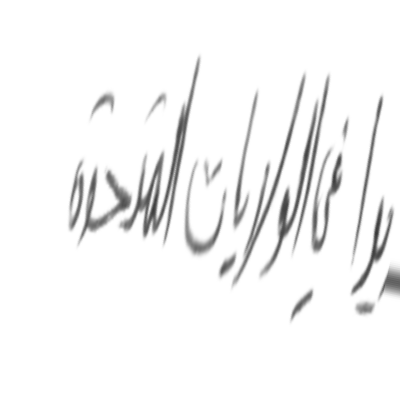 في الولايات المتحدة